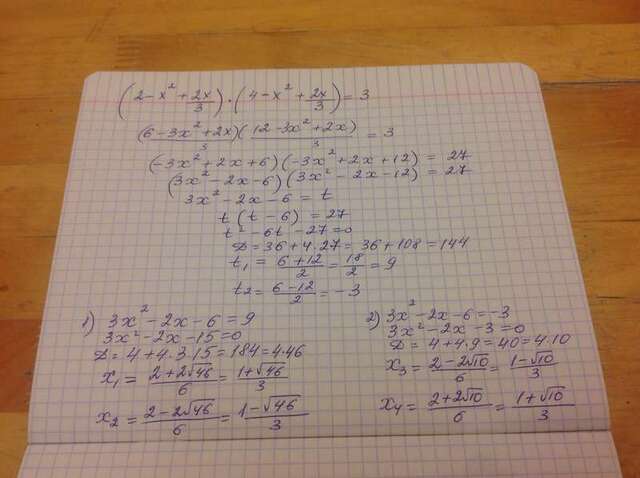 (2 - x² + 2x/3) · (4 - x² + 2x/3) = 3
(6 - 3x² + 2x)/3 (12 - 3x² + 2x)/3 = 3
(-3x² + 2x + 6)(-3x² + 2x + 12) = 27
(3x² - 2x - 6)(3x² - 2x - 12) = 27
3x² - 2x - 6 = t
t(t - 6) = 27
t² - 6t - 27 = 0
D = 36 + 4·27 = 36 + 108 = 144
t₁ = (6 + 12)/2 = 18/2 = 9
t₂ = (6 - 12)/2 = -3
1) 3x² - 2x - 6 = 9
3x² - 2x - 15 = 0
D = 4 + 4·3·15 = 184 = 4·46
x₁ = (2 + 2√46)/6 = (1 + √46)/3
x₂ = (2 - 2√46)/6 = (1 - √46)/3
2) 3x² - 2x - 6 = -3
3x² - 2x - 3 = 0
D = 4 + 4·9 = 40 = 4·10
x₃ = (2 - 2√10)/6 = (1 - √10)/3
x₄ = (2 + 2√10)/6 = (1 + √10)/3